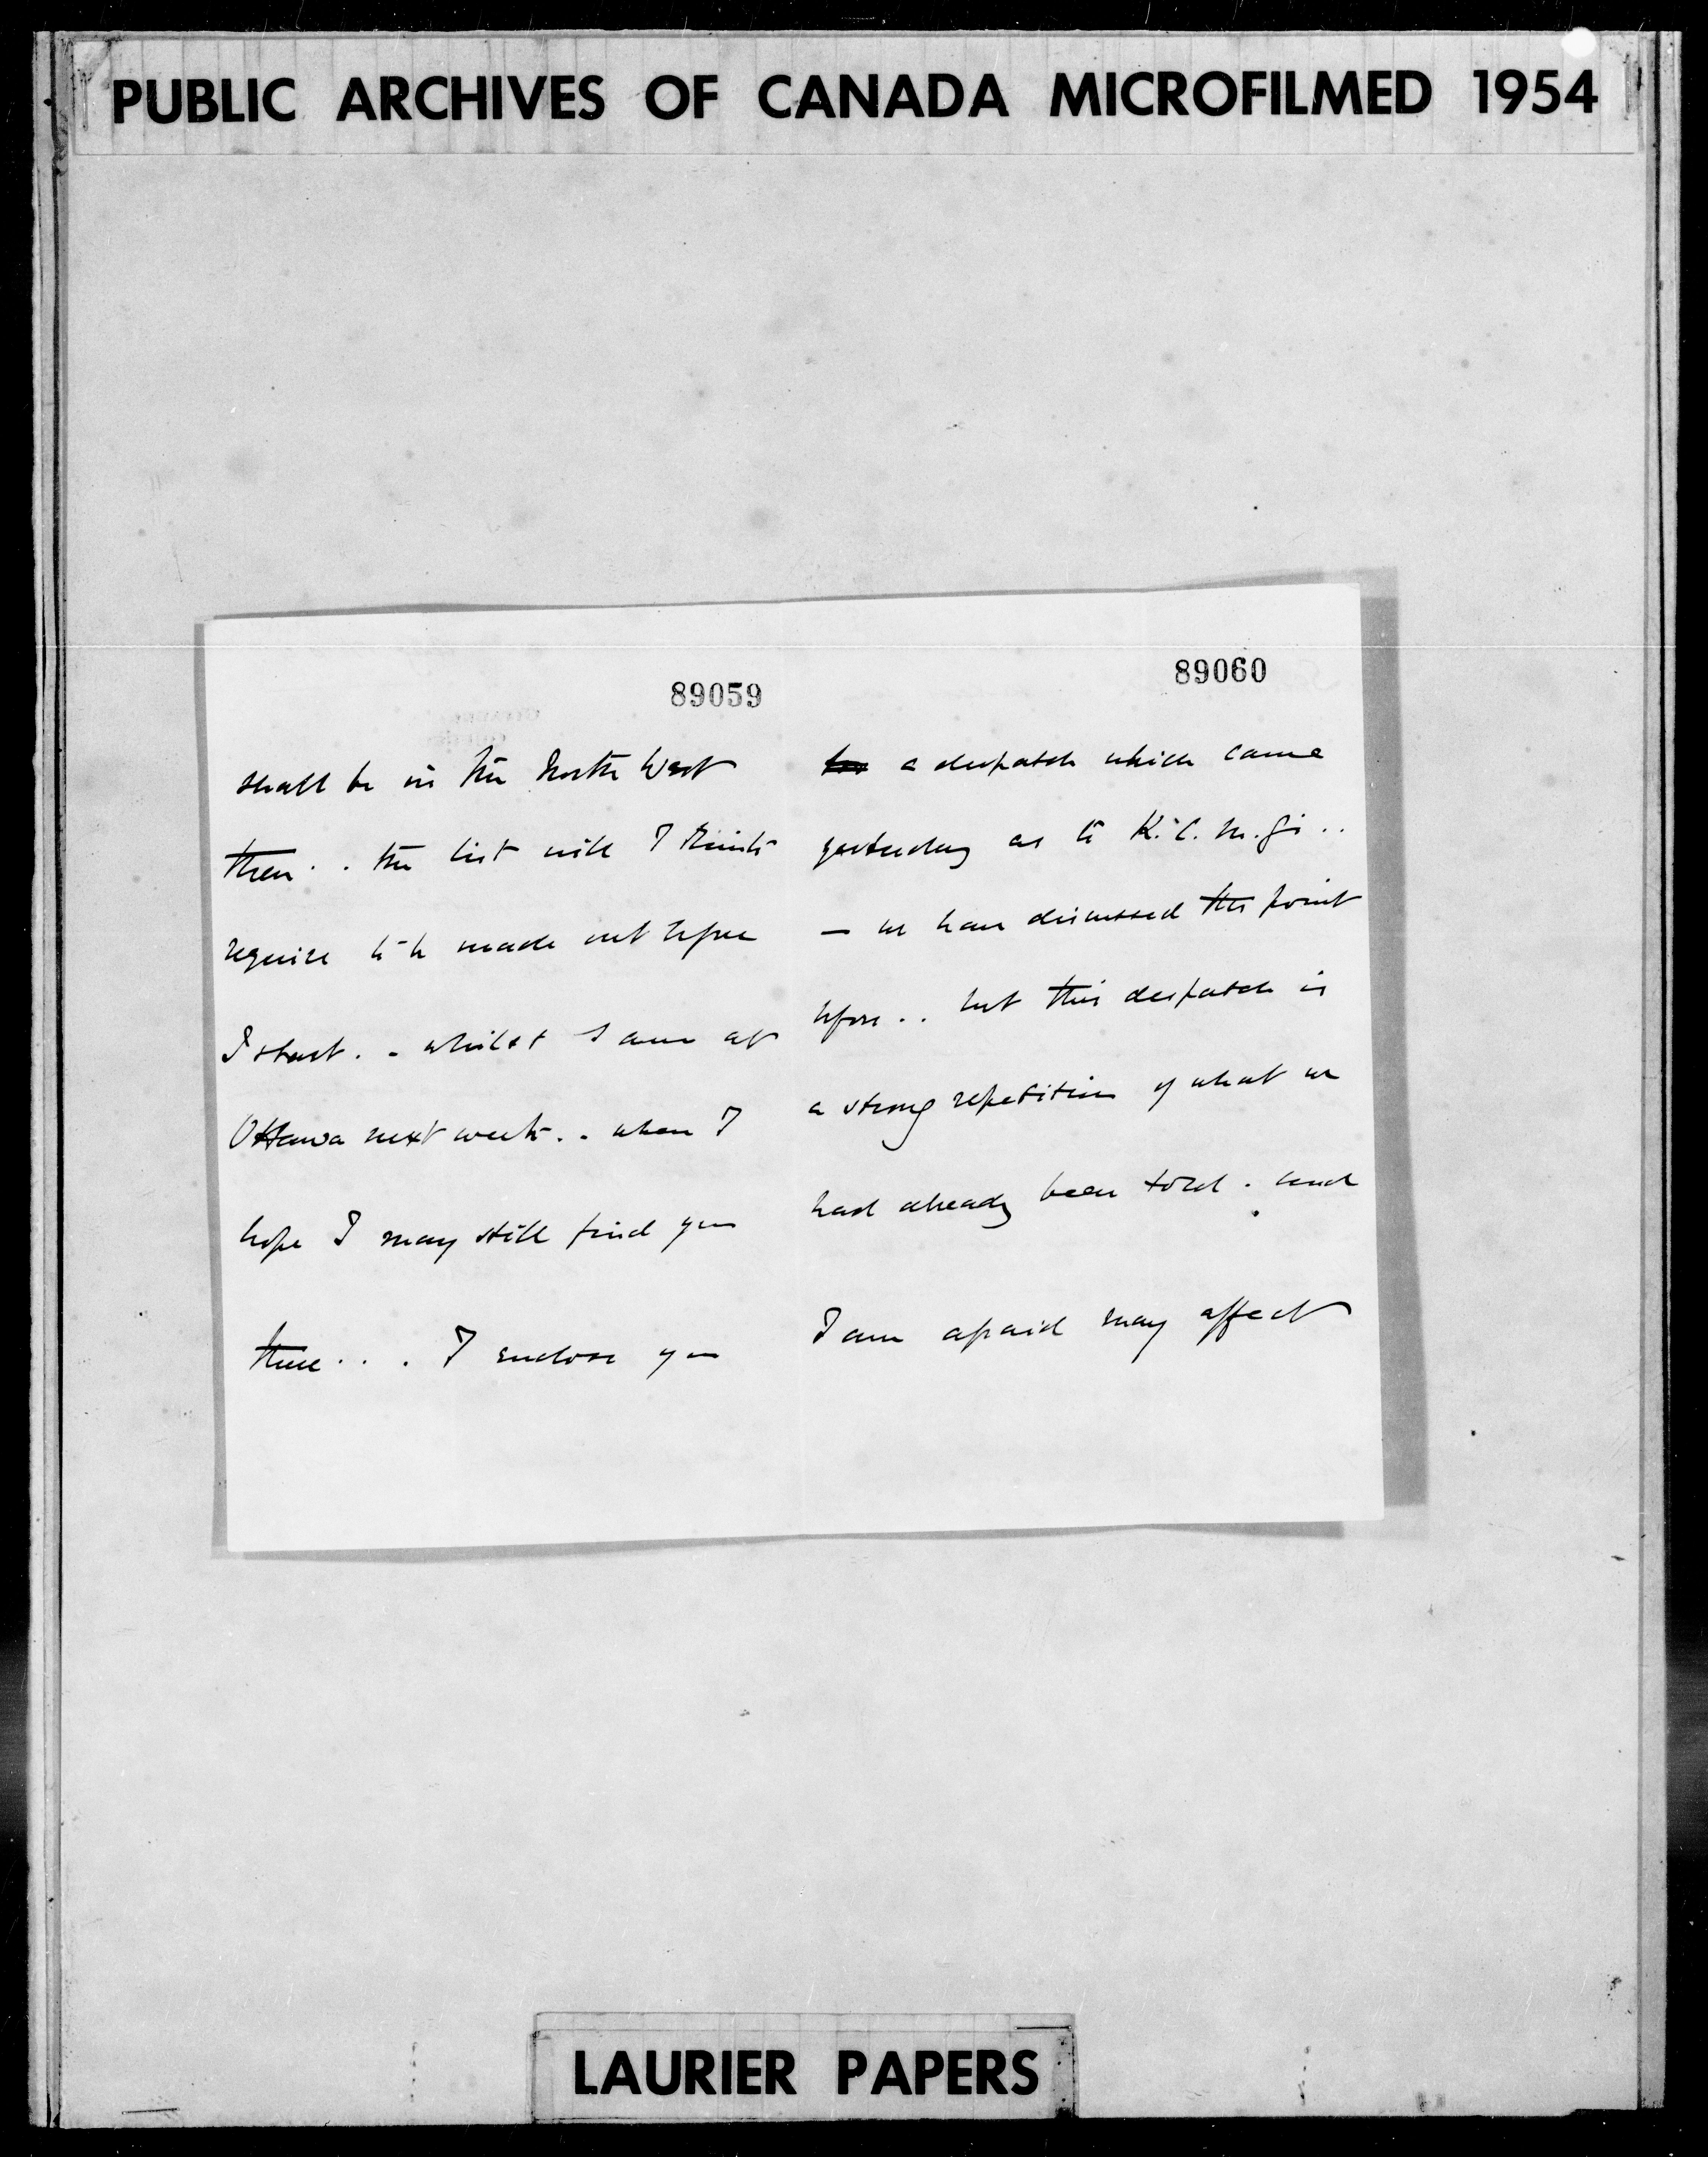 PUBLIC ARCHIVES OF CANADA MICROFILMED 1954
89059
shall be in the North West
then . . the list will I think
require to be made out before
I start . . whilst I am at
Ottawa next week . . when I
hope I may still find you
there . . . I enclose you
89060
a despatch which came
yesterday as to K.C.M.G's . .
— we have discussed this point
before . . but this despatch is
a strong repetition of what we
had already been told . and
I am afraid may affect
LAURIER PAPERS